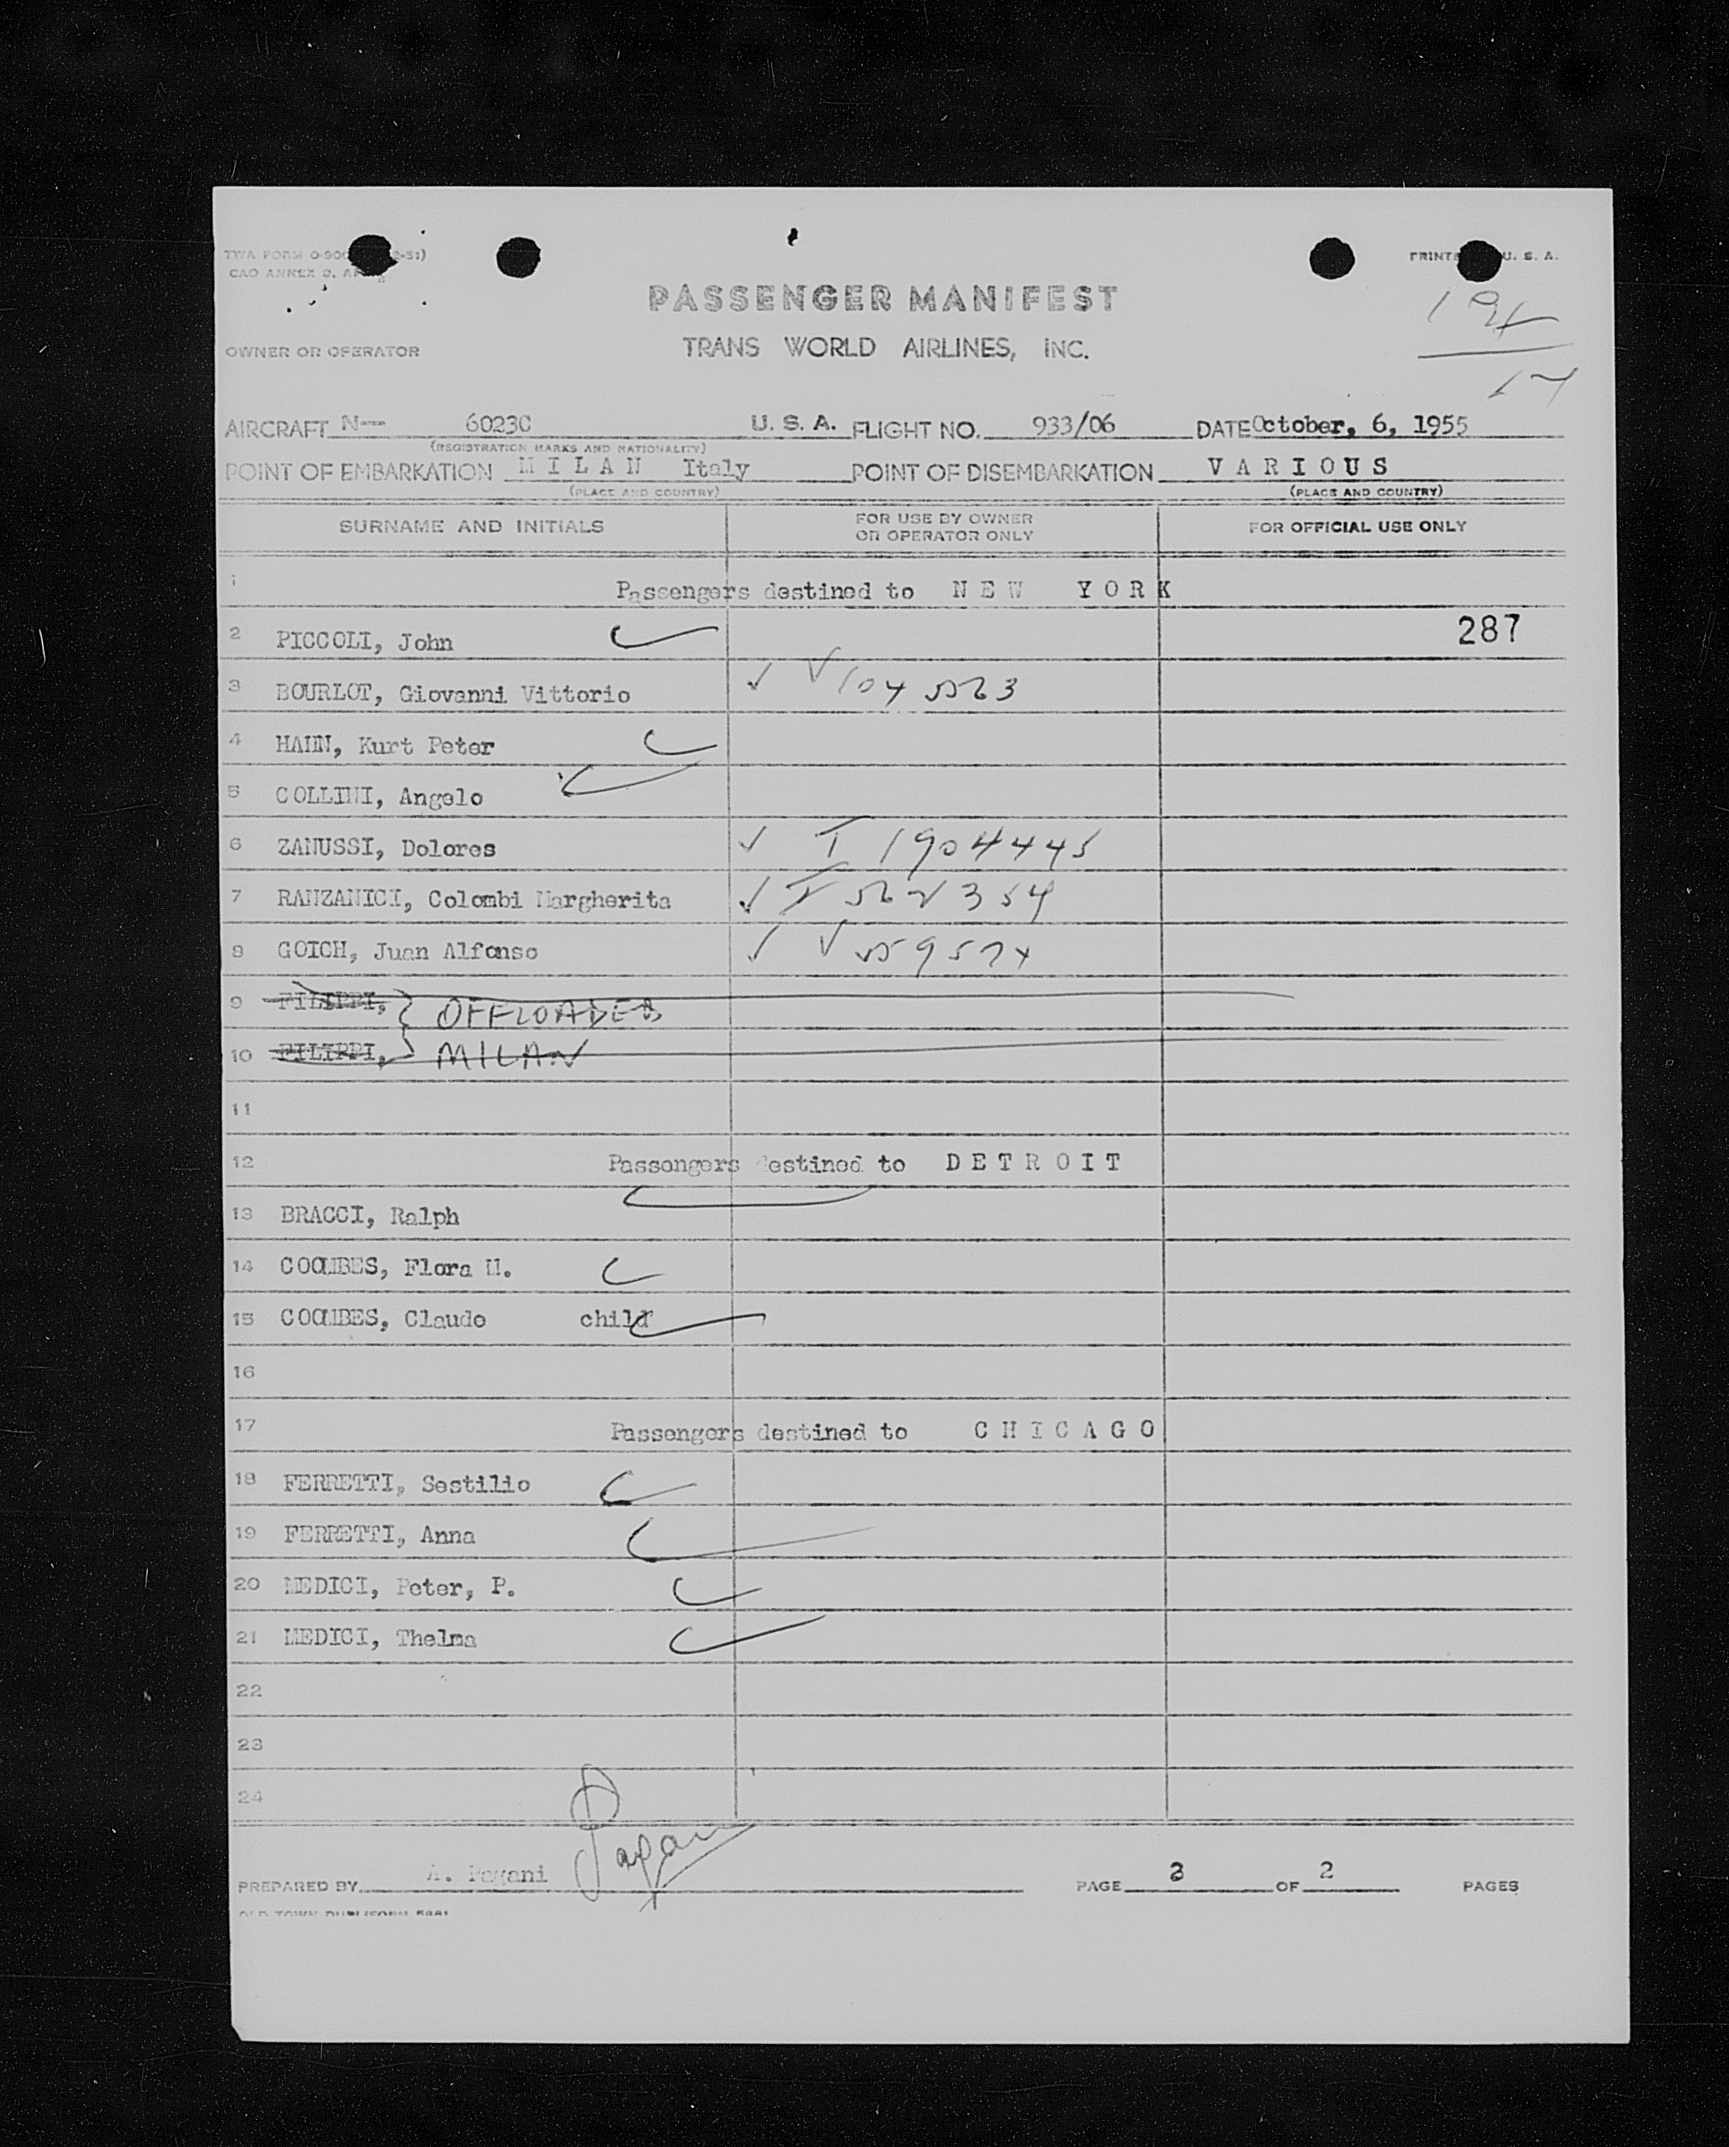 TWA FORM 0-900 2-51)
CAO ANNEX 9, AP
PRINTED U. S. A.
PASSENGER MANIFEST
TRANS WORLD AIRLINES, INC.
OWNER OR OPERATOR
AIRCRAFT N--- 6023C U. S. A. FLIGHT NO. 933/06 DATE October, 6, 1955
(REGISTRATION MARKS AND NATIONALITY)
POINT OF EMBARKATION M I L A N Italy POINT OF DISEMBARKATION V A R I O U S
(PLACE AND COUNTRY) (PLACE AND COUNTRY)
SURNAME AND INITIALS FOR USE BY OWNER OR OPERATOR ONLY FOR OFFICIAL USE ONLY
1 Passengers destined to N E W Y O R K
2 PICCOLI, John 287
3 BOURLOT, Giovanni Vittorio
4 HAHN, Kurt Peter
5 COLLINI, Angelo
6 ZANUSSI, Dolores T 1904445
7 RANZANICI, Colombi Margherita
8 GOICH, Juan Alfonso
9 FILIPPI, OFFLOADED
10 FILIPPI, MILAN
11
12 Passengers destined to D E T R O I T
13 BRACCI, Ralph
14 COOMBES, Flora M.
15 COOMBES, Claude child
16
17 Passengers destined to C H I C A G O
18 FERRETTI, Sestilio
19 FERRETTI, Anna
20 MEDICI, Peter, P.
21 MEDICI, Thelma
22
23
24
PREPARED BY A. Pagani Pagani PAGE 2 OF 2 PAGES
OLD TOWN DUPLIFORM